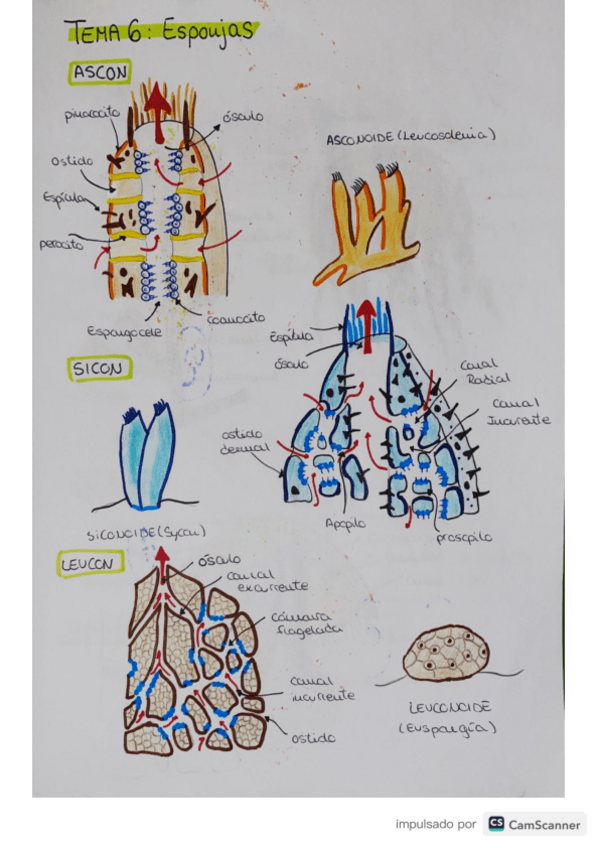 TEMA 6: Espoujas
ASCON
pinacocito
ósculo
Ostido
Espícula
porocito
Espongocele
coanocito
ASCONOIDE (Leucosolenia)
SICON
Espícula
ósculo
Canal
Radial
Canal
Incurrente
ostido
dermal
Apopilo
prosopilo
SICONOIDE (Sycon)
LEUCON
ósculo
canal
excurrente
cámara
flagelada
canal
incurrente
ostido
LEUCONOIDE
(Euspongia)
impulsado por CS CamScanner